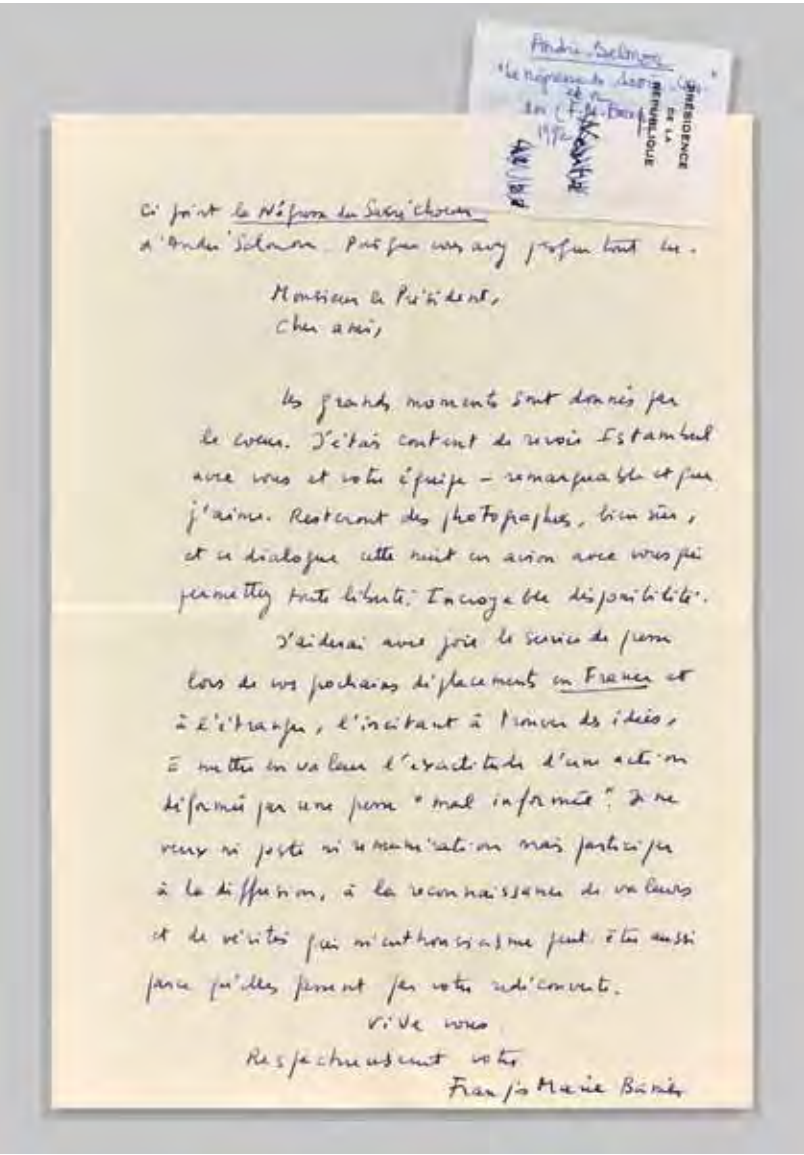 André Salmon
"Le Négresse du Sacré-Cœur"
1992
PRÉSIDENCE
DE LA
RÉPUBLIQUE
Ci joint la Négresse du Sacré Choeur
d'André Salmon. Puisque vous avez presque tout lu.
Monsieur le Président,
Cher ami,
Les grands moments sont donnés par
le coeur. J'étais content de revoir Istambul
avec vous et votre équipe – remarquable et que
j'aime. Resteront des photographies, bien sûr,
et ce dialogue cette nuit en avion avec vous qui
permettez toute liberté. Incroyable disponibilité.
J'aiderai avec joie le service de presse
lors de vos prochains déplacements en France et
à l'étranger, l'incitant à trouver des idées,
à mettre en valeur l'exactitude d'une action
déformée par une presse "mal informée". Je ne
veux ni poste ni rémunération mais participer
à la diffusion, à la reconnaissance de valeurs
et de vérités qui m'enthousiasme peut-être aussi
parce qu'elles passent par votre redécouverte.
Vive vous.
Respectueusement votre
François Marie Banier